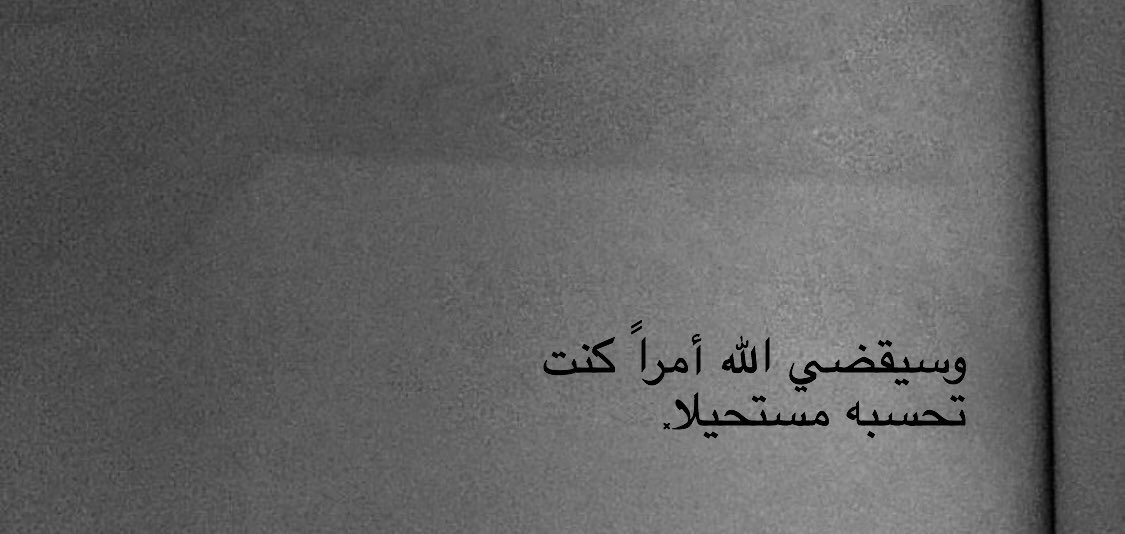 وسيقضي الله أمراً كنت
تحسبه مستحيلا